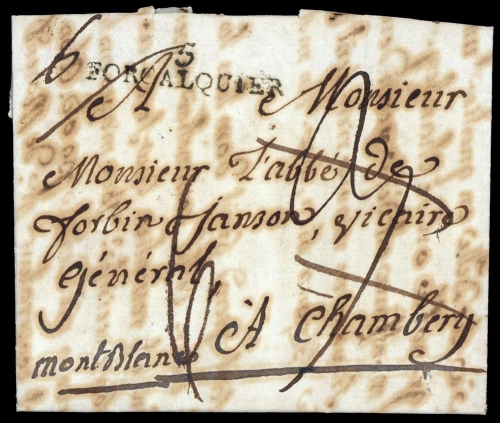 6
5
FORCALQUIER
A Monsieur
Monsieur l'abbé de
forbin Janson, vicaire
général,
A Chambery
mont Blanc